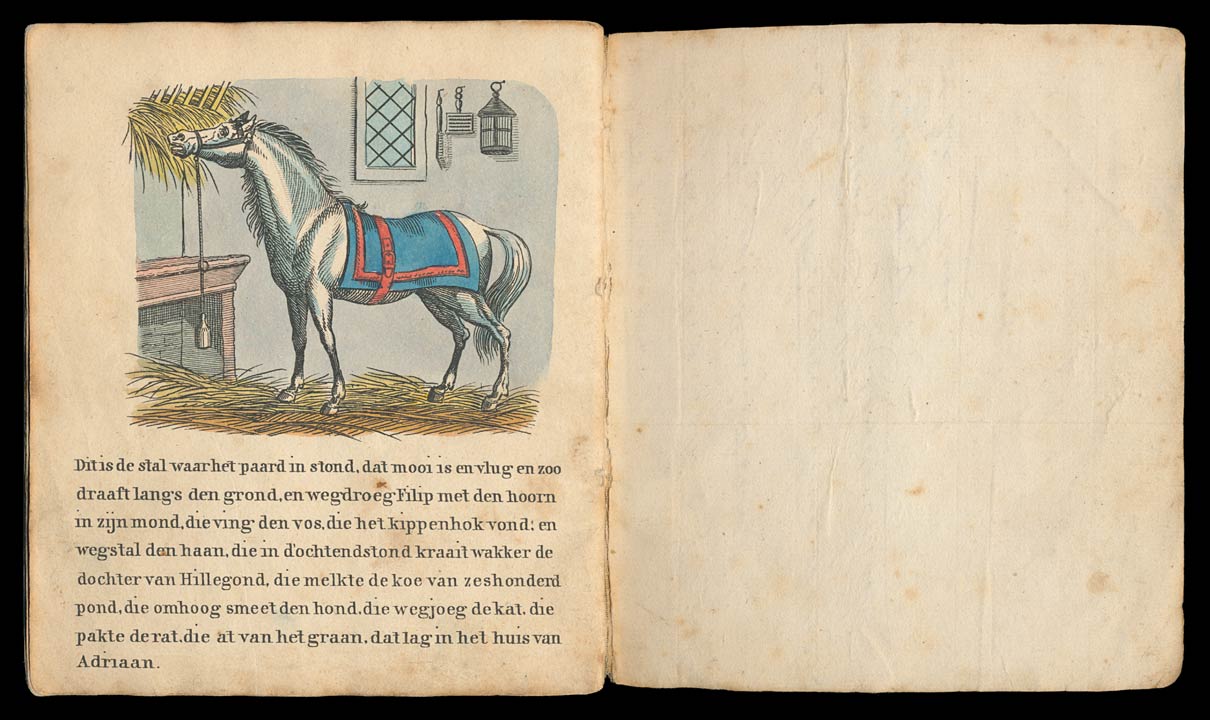 Dit is de stal waar het paard in stond, dat mooi is en vlug en zoo
draaft langs den grond, en wegdroeg Filip met den hoorn
in zijn mond, die ving den vos, die het kippenhok vond; en
wegstal den haan, die in d'ochtendstond kraait wakker de
dochter van Hillegond, die melkte de koe van zeshonderd
pond, die omhoog smeet den hond, die wegjoeg de kat, die
pakte de rat, die at van het graan, dat lag in het huis van
Adriaan.